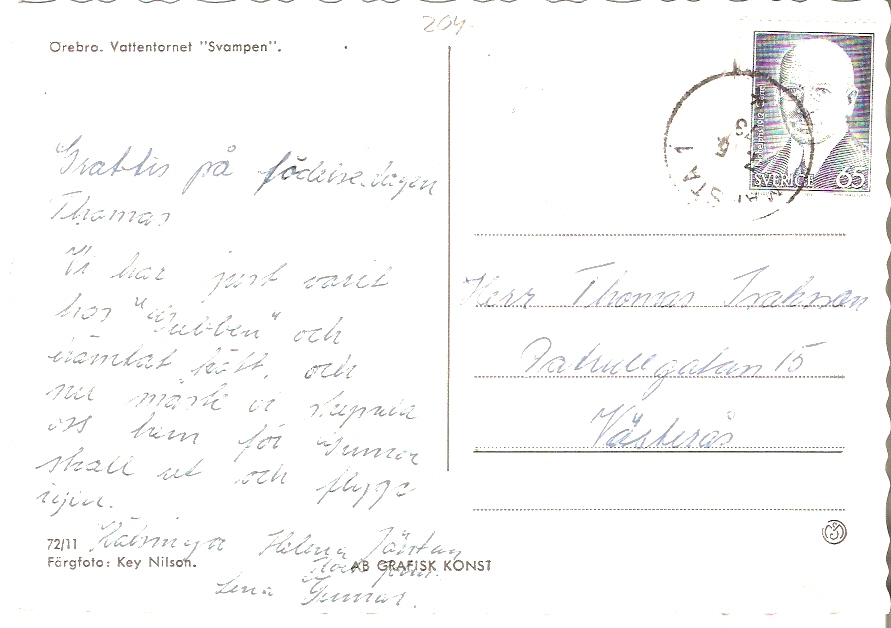 204
Örebro. Vattentornet "Svampen".
Grattis på födelsedagen
Thomas
Vi har just varit
hos "Gubben" och
hämtat kött, och
nu måste vi
oss hem för Gunnar
skall ut och flyga
igen.
Hälsningar Helena
Lena Gunnar.
72/11
Färgfoto: Key Nilson.
AB GRAFISK KONST
SVERIGE 65
Herr Thomas
Patrullgatan 15
Västerås